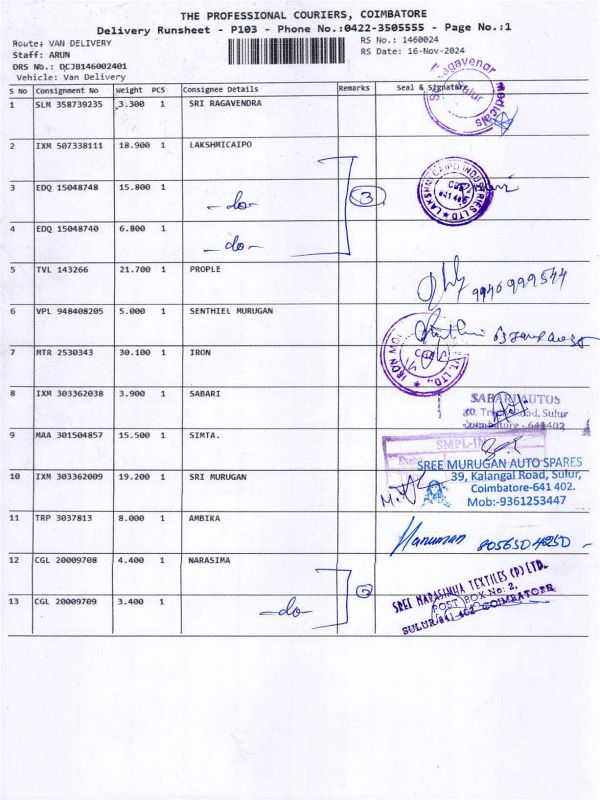 THE PROFESSIONAL COURIERS, COIMBATORE
Delivery Runsheet - P103 - Phone No.:0422-3505555 - Page No.:1
Route: VAN DELIVERY RS No.: 1460024
Staff: ARUN RS Date: 16-Nov-2024
DRS No.: DCJB146002401
Vehicle: Van Delivery
S No Consignment No Weight PCS Consignee Details Remarks Seal & Signature
1 SLM 358739235 3.300 1 SRI RAGAVENDRA
Ragavendar Medicals
Sulur
2 IXM 507338111 18.900 1 LAKSHMICAIPO
3 EDQ 15048748 15.800 1 -do- 3
LAKSHMI CAIPO INDUSTRIES LTD
4 EDQ 15048740 6.800 1 -do-
5 TVL 143266 21.700 1 PROPLE
9940999544
6 VPL 948408205 5.000 1 SENTHIEL MURUGAN
7 MTR 2530343 30.100 1 IRON
8 IXM 303362038 3.900 1 SABARI
SABARI AUTOS
Sulur
Coimbatore - 641402
9 MAA 301504857 15.500 1 SIMTA.
10 IXM 303362009 19.200 1 SRI MURUGAN
SREE MURUGAN AUTO SPARES
39, Kalangal Road, Sulur,
Coimbatore-641 402.
Mob:-9361253447
11 TRP 3037813 8.000 1 AMBIKA
12 CGL 20009708 4.400 1 NARASIMA
13 CGL 20009709 3.400 1 -do- 2
SREE NARASIMHA TEXTILES (P) LTD.
POST BOX No: 2,
SULUR 641 402 COIMBATORE